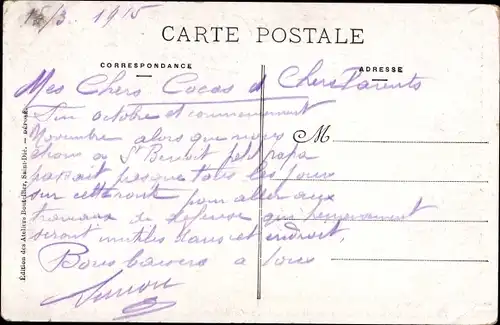 15/3 1915
CARTE POSTALE
CORRESPONDANCE
ADRESSE
Mes Chers Cocos et Chers Parents
Fin octobre et commencement
Novembre alors que nous
étions à St Benoit petit papa
passait presque tous les jours
sur cette route pour aller aux
travaux de défense qui heureusement
seront inutiles dans cet endroit,
Bons baisers à tous
M
Édition des Ateliers Bouteiller, Saint-Dié. —